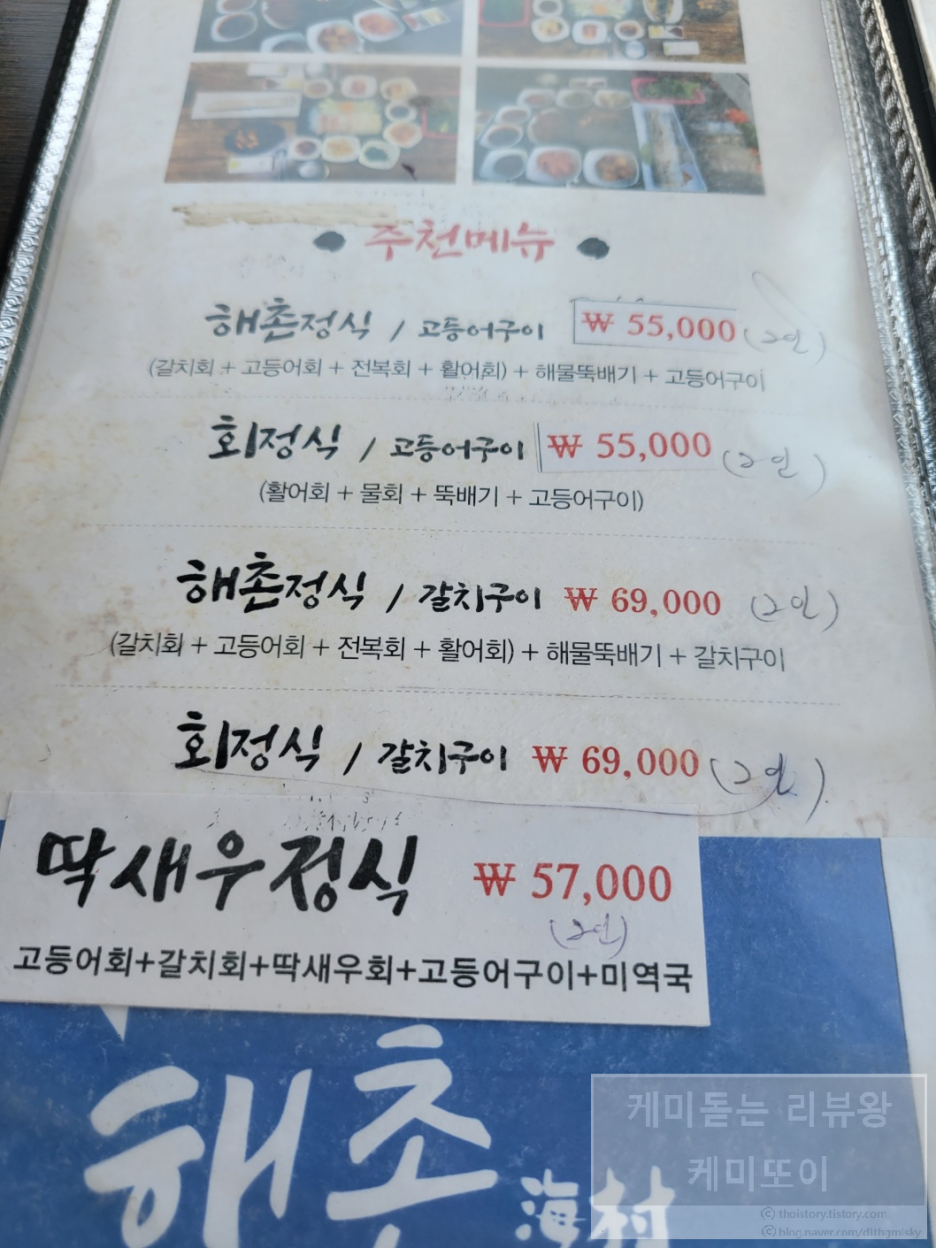 추천메뉴
해촌정식 / 고등어구이 ₩ 55,000 (2인)
(갈치회 + 고등어회 + 전복회 + 활어회) + 해물뚝배기 + 고등어구이
회정식 / 고등어구이 ₩ 55,000 (2인)
(활어회 + 물회 + 뚝배기 + 고등어구이)
해촌정식 / 갈치구이 ₩ 69,000 (2인)
(갈치회 + 고등어회 + 전복회 + 활어회) + 해물뚝배기 + 갈치구이
회정식 / 갈치구이 ₩ 69,000 (2인)
딱새우정식 ₩ 57,000
(2인)
고등어회+갈치회+딱새우회+고등어구이+미역국
해촌 海村
케미돋는 리뷰왕
케미또이
ⓒ thoistory.tistory.com